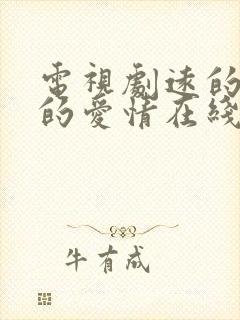 電視劇速的
的愛情在綫
牛有成